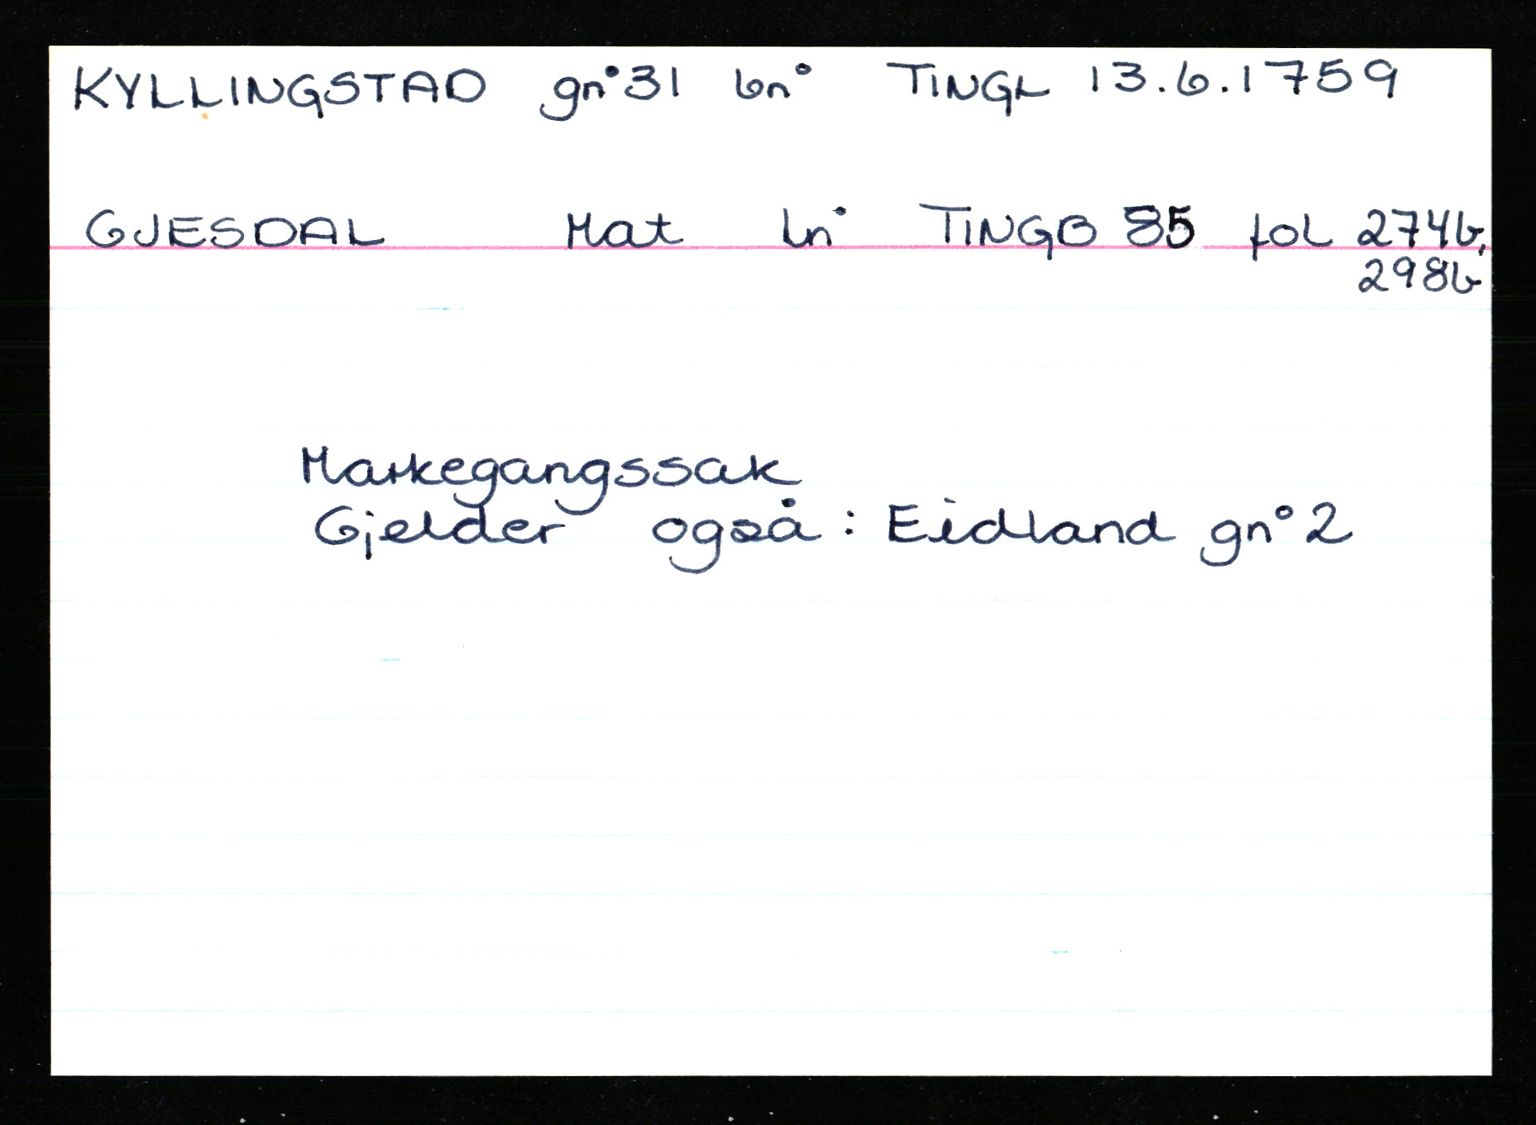 KYLLINGSTAD gn° 31 bn° TINGL 13.6.1759
GJESDAL Mat Ln° TINGB 85 fol 274b,
298b
Markegangssak
Gjelder også: Eidland gn° 2